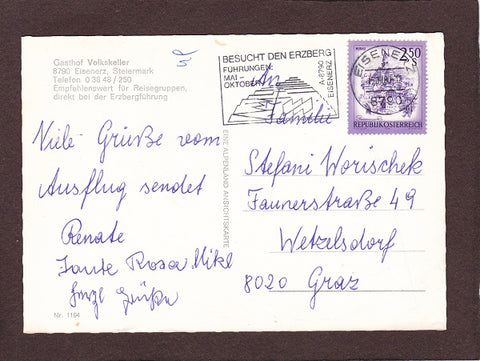 Gasthof Volkskeller
8790 Eisenerz, Steiermark
Telefon 0 38 48 / 250
Empfehlenswert für Reisegruppen,
direkt bei der Erzbergführung
BESUCHT DEN ERZBERG
FÜHRUNGEN:
MAI -
OKTOBER
A-8790
EISENERZ
EISENERZ
8790
2.50
S
REPUBLIK ÖSTERREICH
An
Familie
Stefani Worischek
Faunerstraße 49
Wetzelsdorf
8020 Graz
EINE ALPENLAND ANSICHTSKARTE
Viele Grüße vom
Ausflug sendet
Renate
Tante Rosa Mikl
Grüße
Nr. 1164